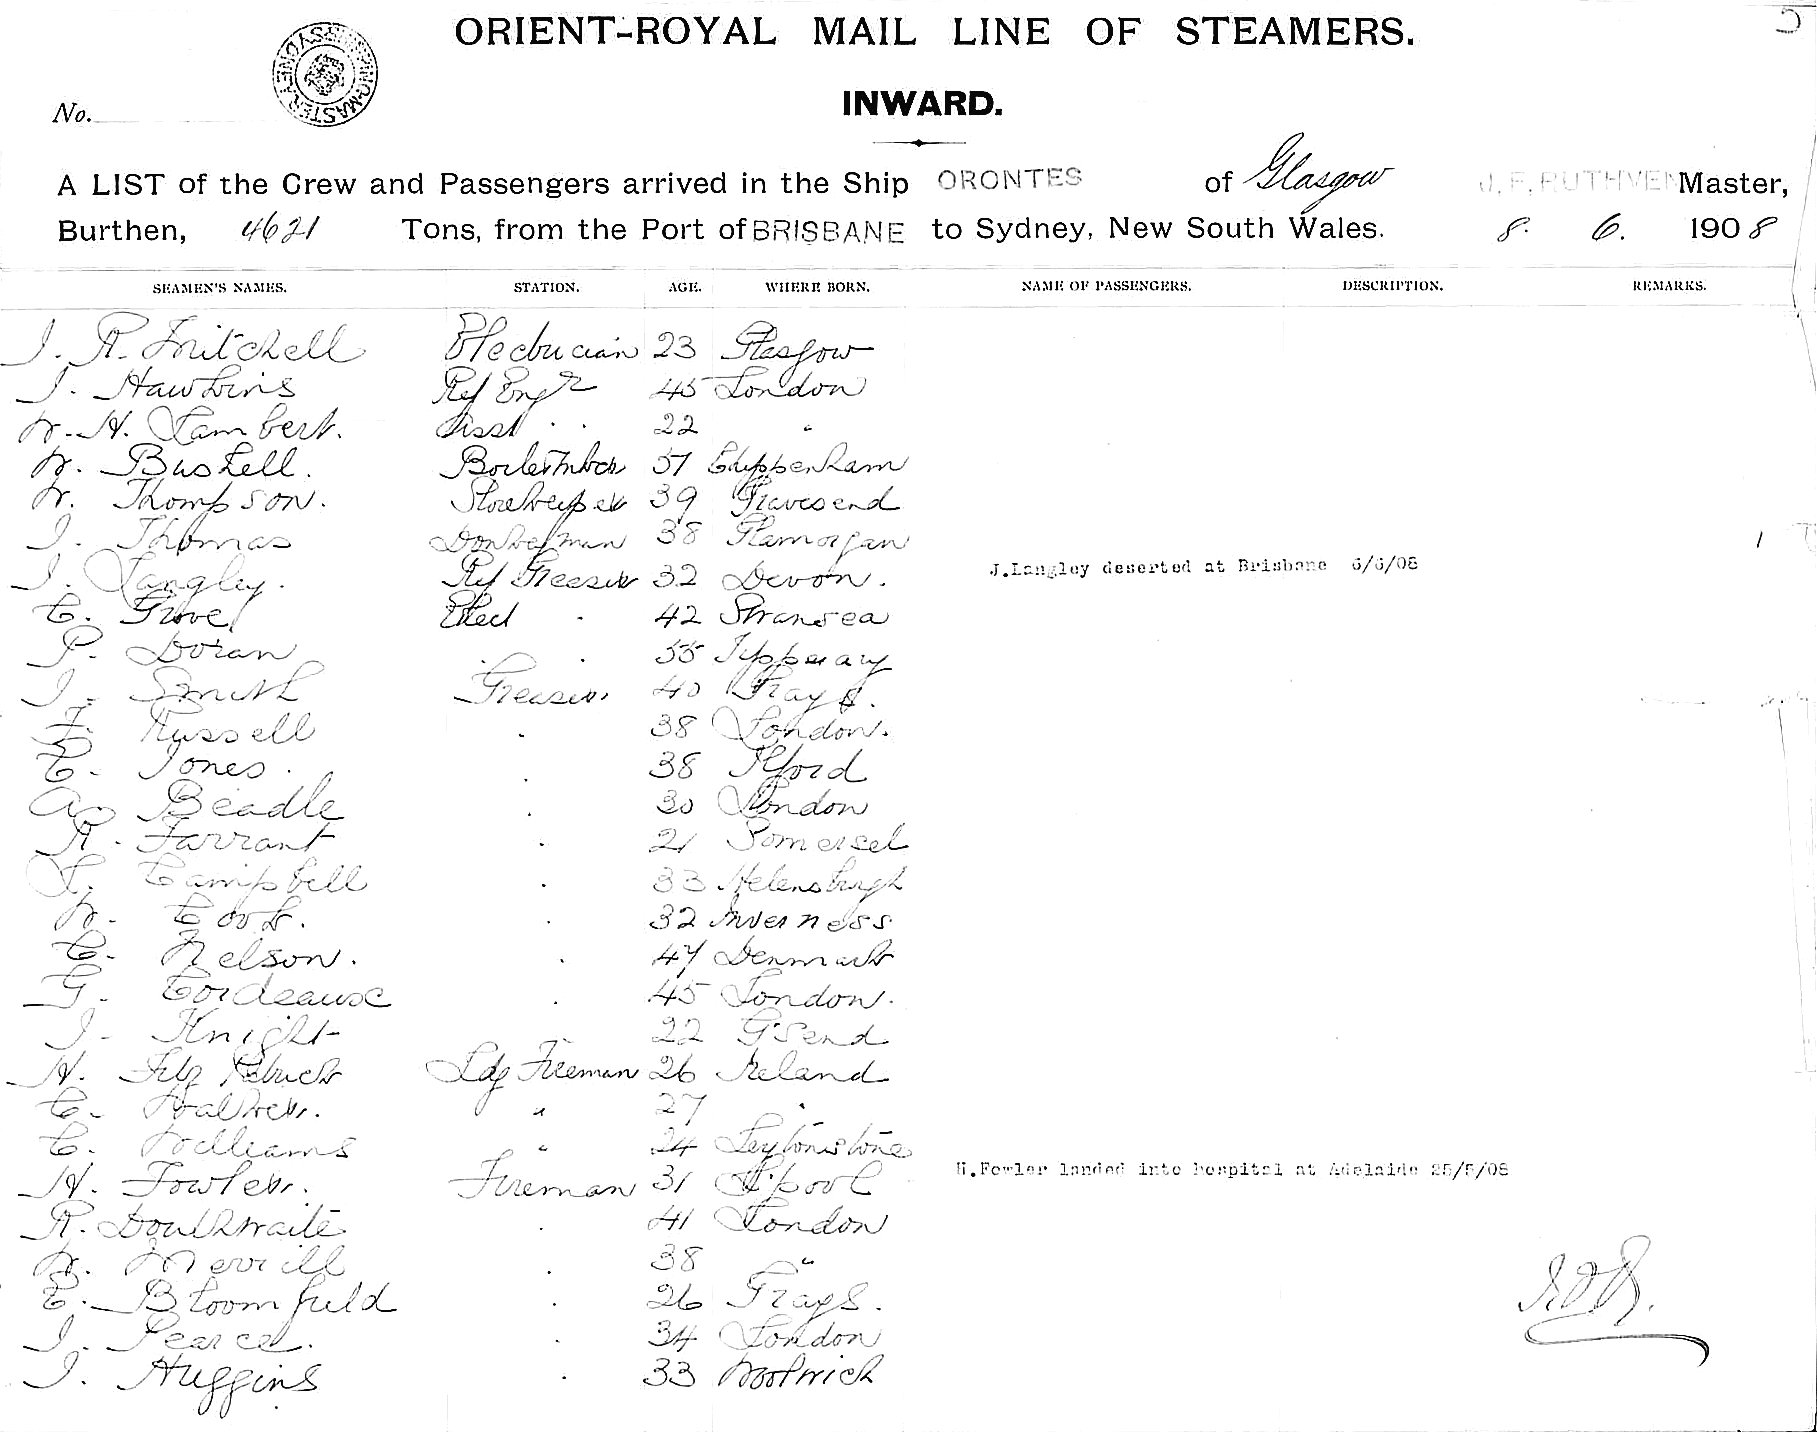 ORIENT-ROYAL MAIL LINE OF STEAMERS.
INWARD.
No.
A LIST of the Crew and Passengers arrived in the Ship ORONTES of Glasgow J. F. RUTHVEN Master,
Burthen, 4621 Tons, from the Port of BRISBANE to Sydney, New South Wales. 8. 6. 1908
SEAMEN'S NAMES. STATION. AGE. WHERE BORN. NAME OF PASSENGERS. DESCRIPTION. REMARKS.
J. R. Mitchell Electrician 23 Glasgow
J. Hawkins Ref Engr 45 London
W. H. Lambert. Asst " " 22 "
W. Bushell. Boilermaker 57 Chippenham
W. Thompson. Storekeeper 39 Gravesend
J. Thomas Donkeyman 38 Glamorgan
J. Langley. Ref Greaser 32 Devon. J.Langley deserted at Brisbane 6/6/08
C. Grove Elect " 42 Swansea
P. Doran " " 55 Tipperary
J. Smith Greaser. 40 Grays.
F. Russell " 38 London.
C. Jones. " 38 Ilford
A. Beadle " 30 London
R. Farrant " 21 Somerset
L. Campbell " 33 Helensburgh
W. Cook. " 32 Inverness
C. Nelson. " 47 Denmark
G. Cordeaux " 45 London.
J. Knight " 22 G'Send
H. Fitz Patrick Ldg Fireman 26 Ireland
C. Walker. " 27 "
C. Williams " 24 Leytonstone
H. Fowler. Fireman 31 L'pool H.Fowler landed into hospital at Adelaide 25/5/08
R. Douthwaite " 41 London
W. Merrill " 38 "
E. Bloomfield " 26 Grays.
J. Pearce. " 34 London
J. Huggins " 33 Woolwich